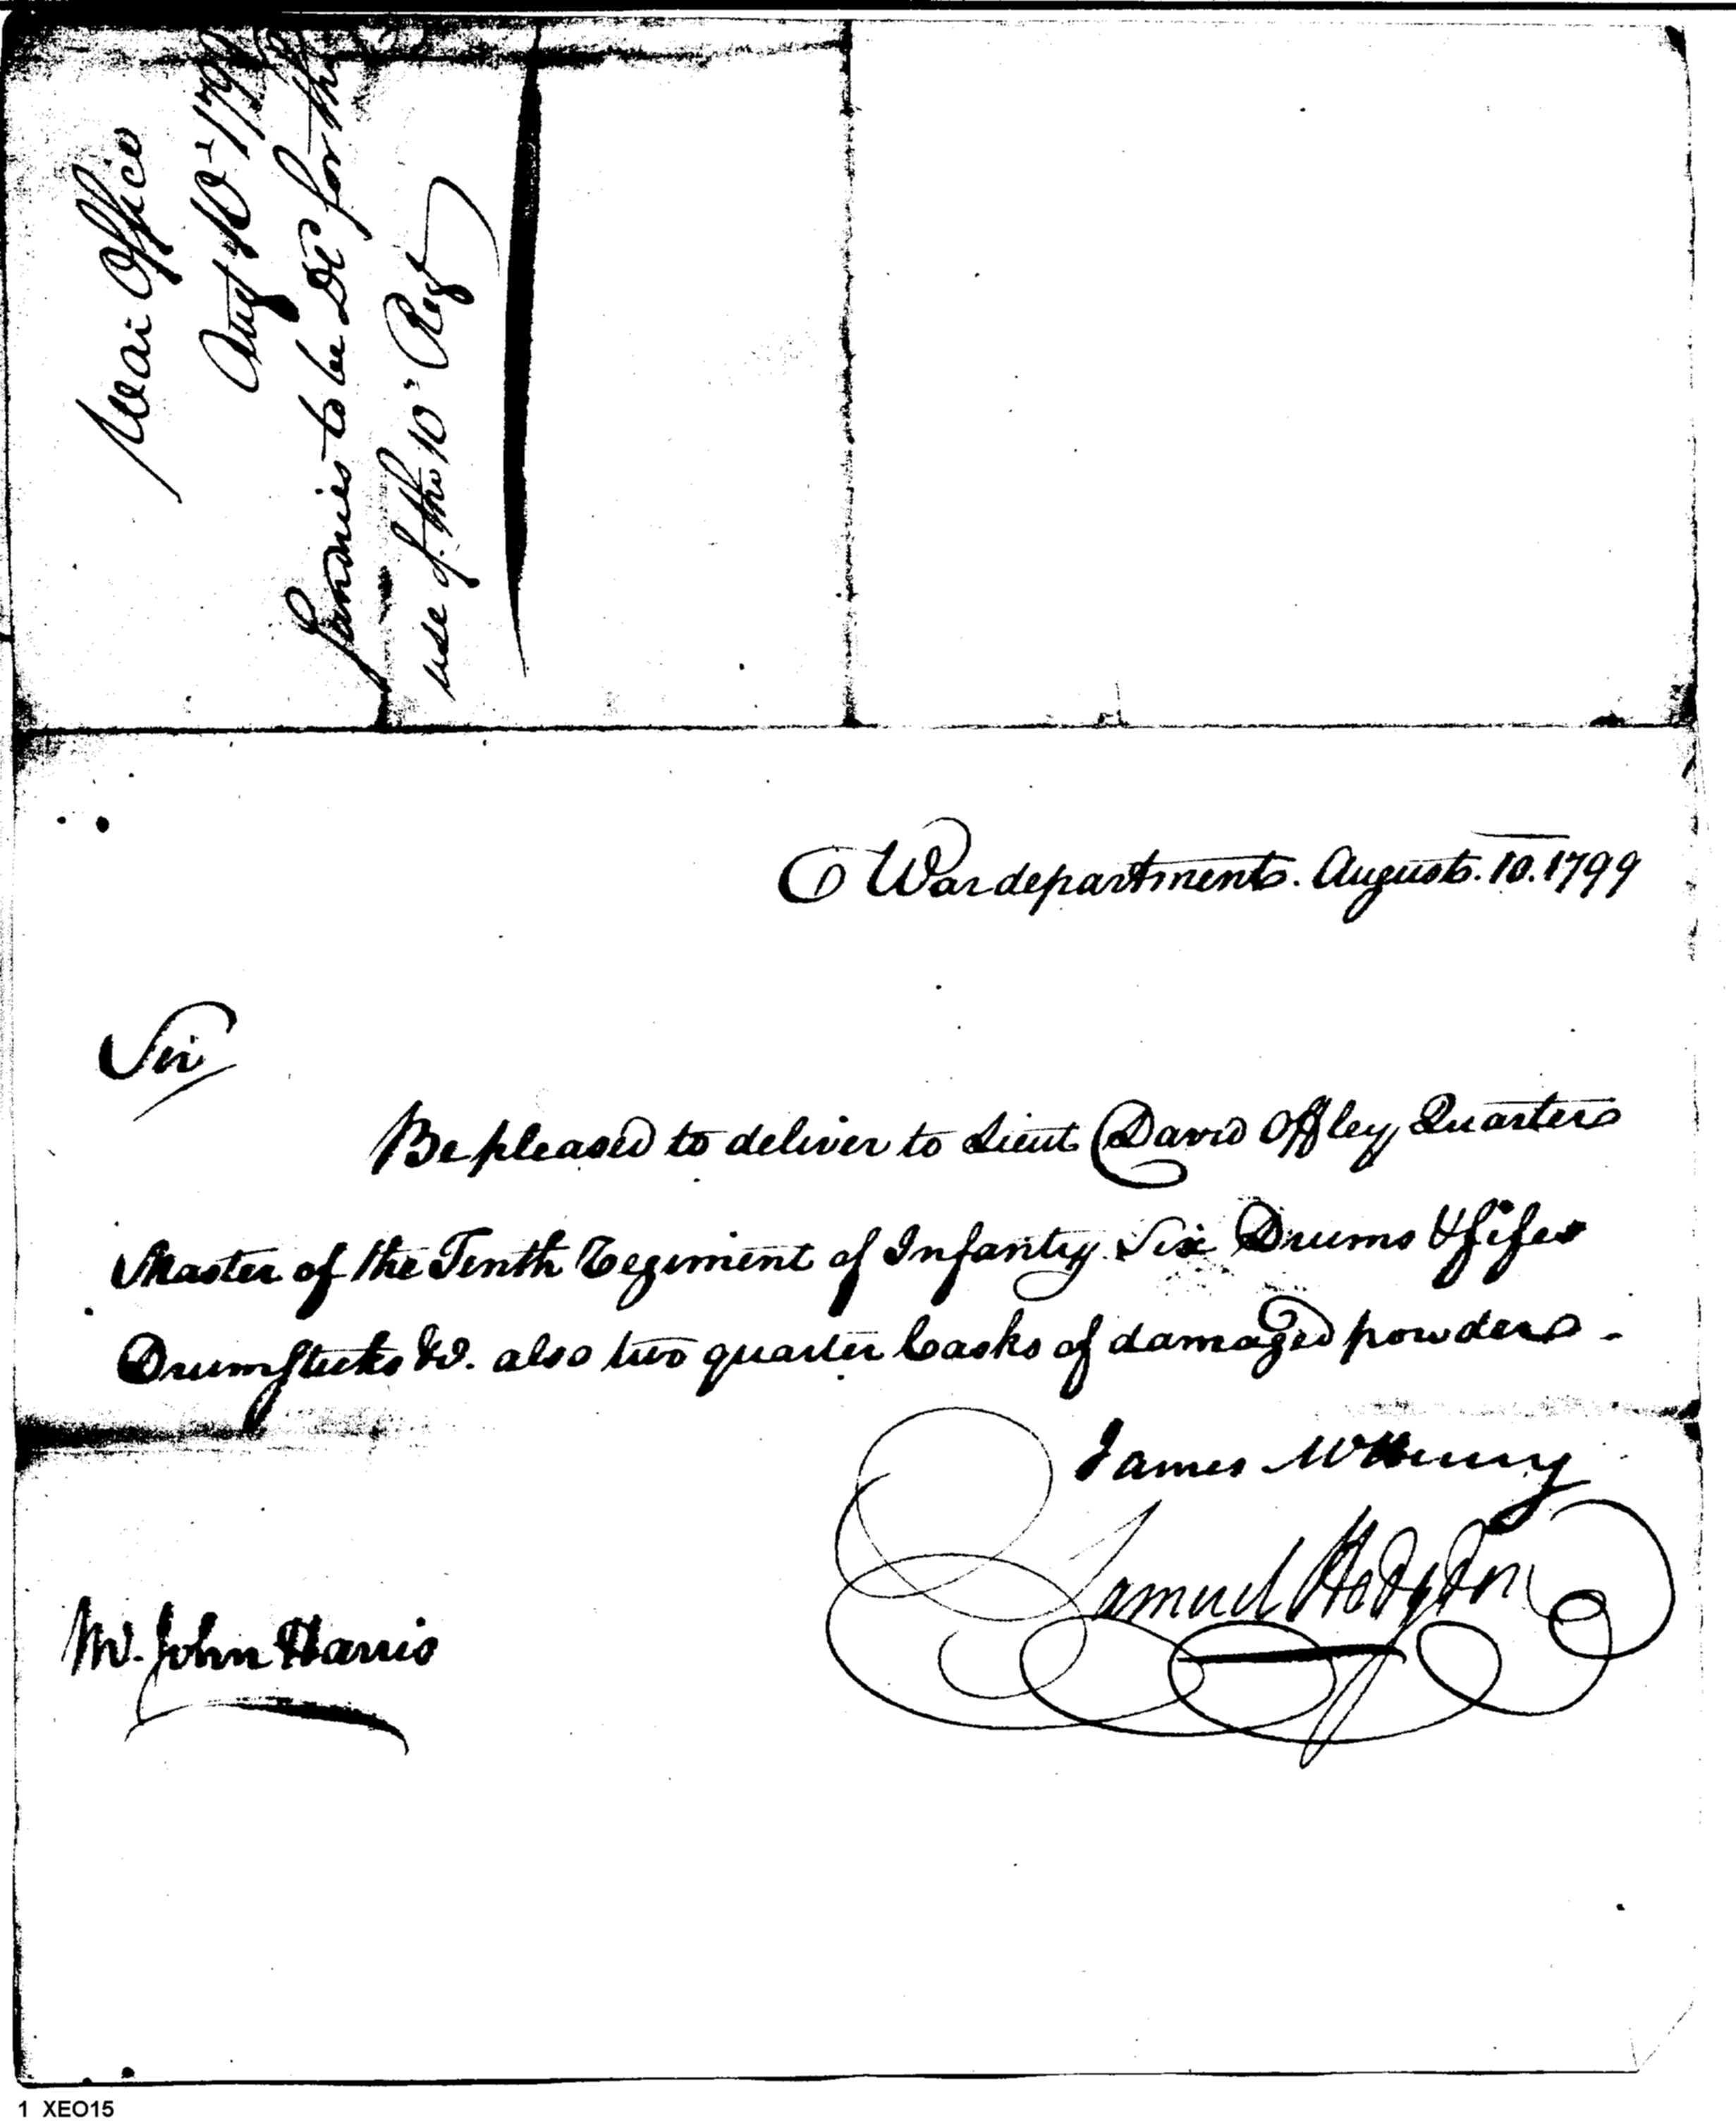 War Office
Aug 10 1799
Sundries to be Dd for the
use of the 10" Regt
War department. August. 10. 1799
Sir
Be pleased to deliver to Lieut David Offley, Quarter
Master of the Tenth Regiment of Infantry Six Drums & fifes
Drumsticks &c. also two quarter Casks of damaged powder -
James McHenry
Samuel Hodgdon
Mr. John Harris
1 XEO15